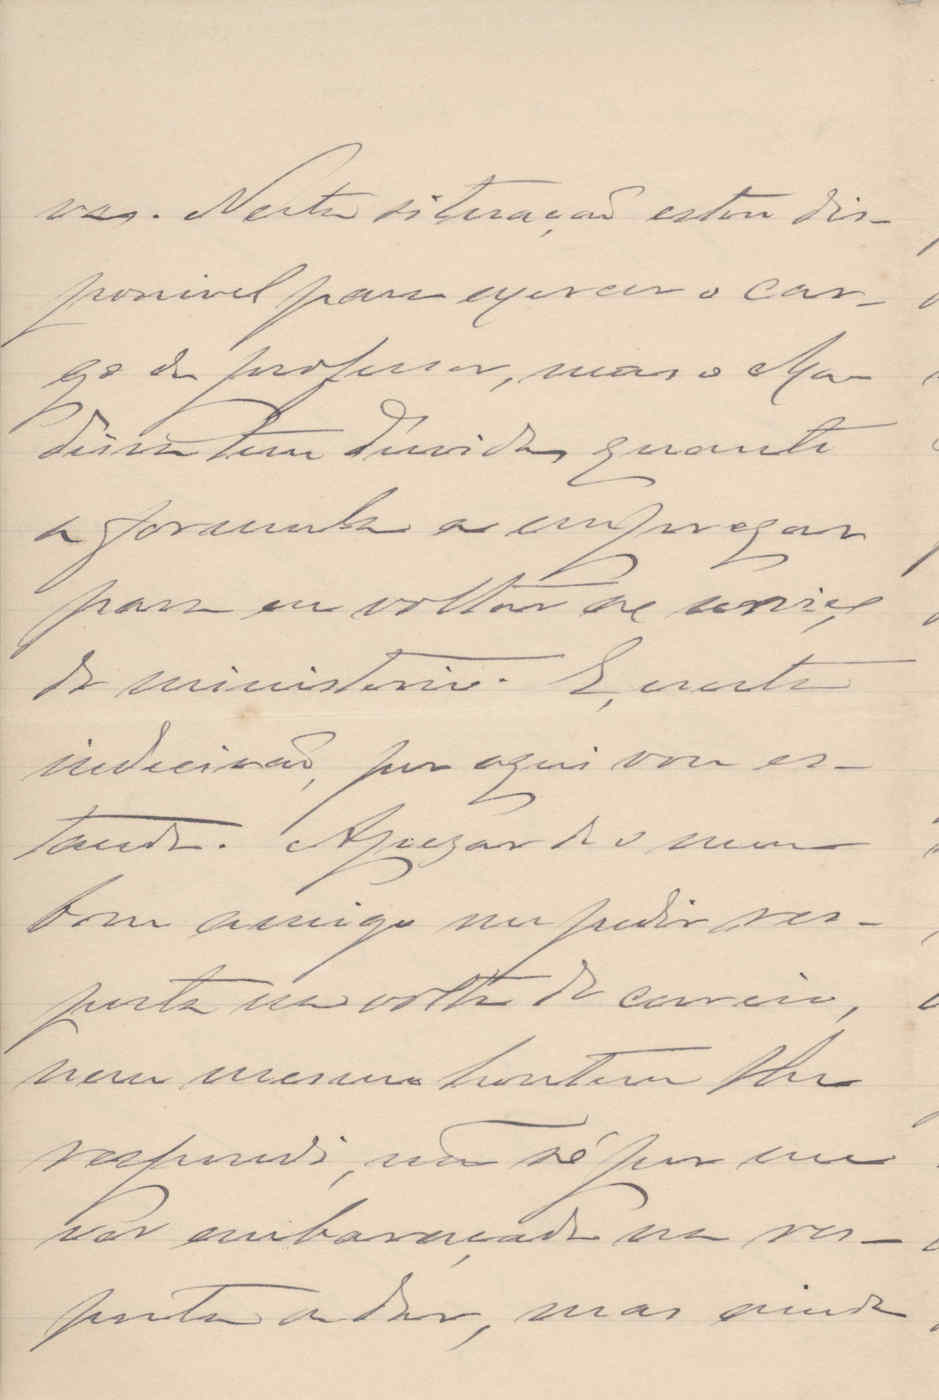 vas. Nesta situação estou dis-
ponivel para exercer o car-
go de professor, mas o Ma-
deira tem duvidas quanto
a formula a empregar
para eu voltar ao serviço
do ministerio. E, n'esta
indecisão, por aqui vou es-
tando. Apezar de o meu
bom amigo me pedir res-
posta na volta do correio,
nem mesmo hontem lhe
respondi, não só por me
vêr embaraçado na res-
posta a dar, mas ainda